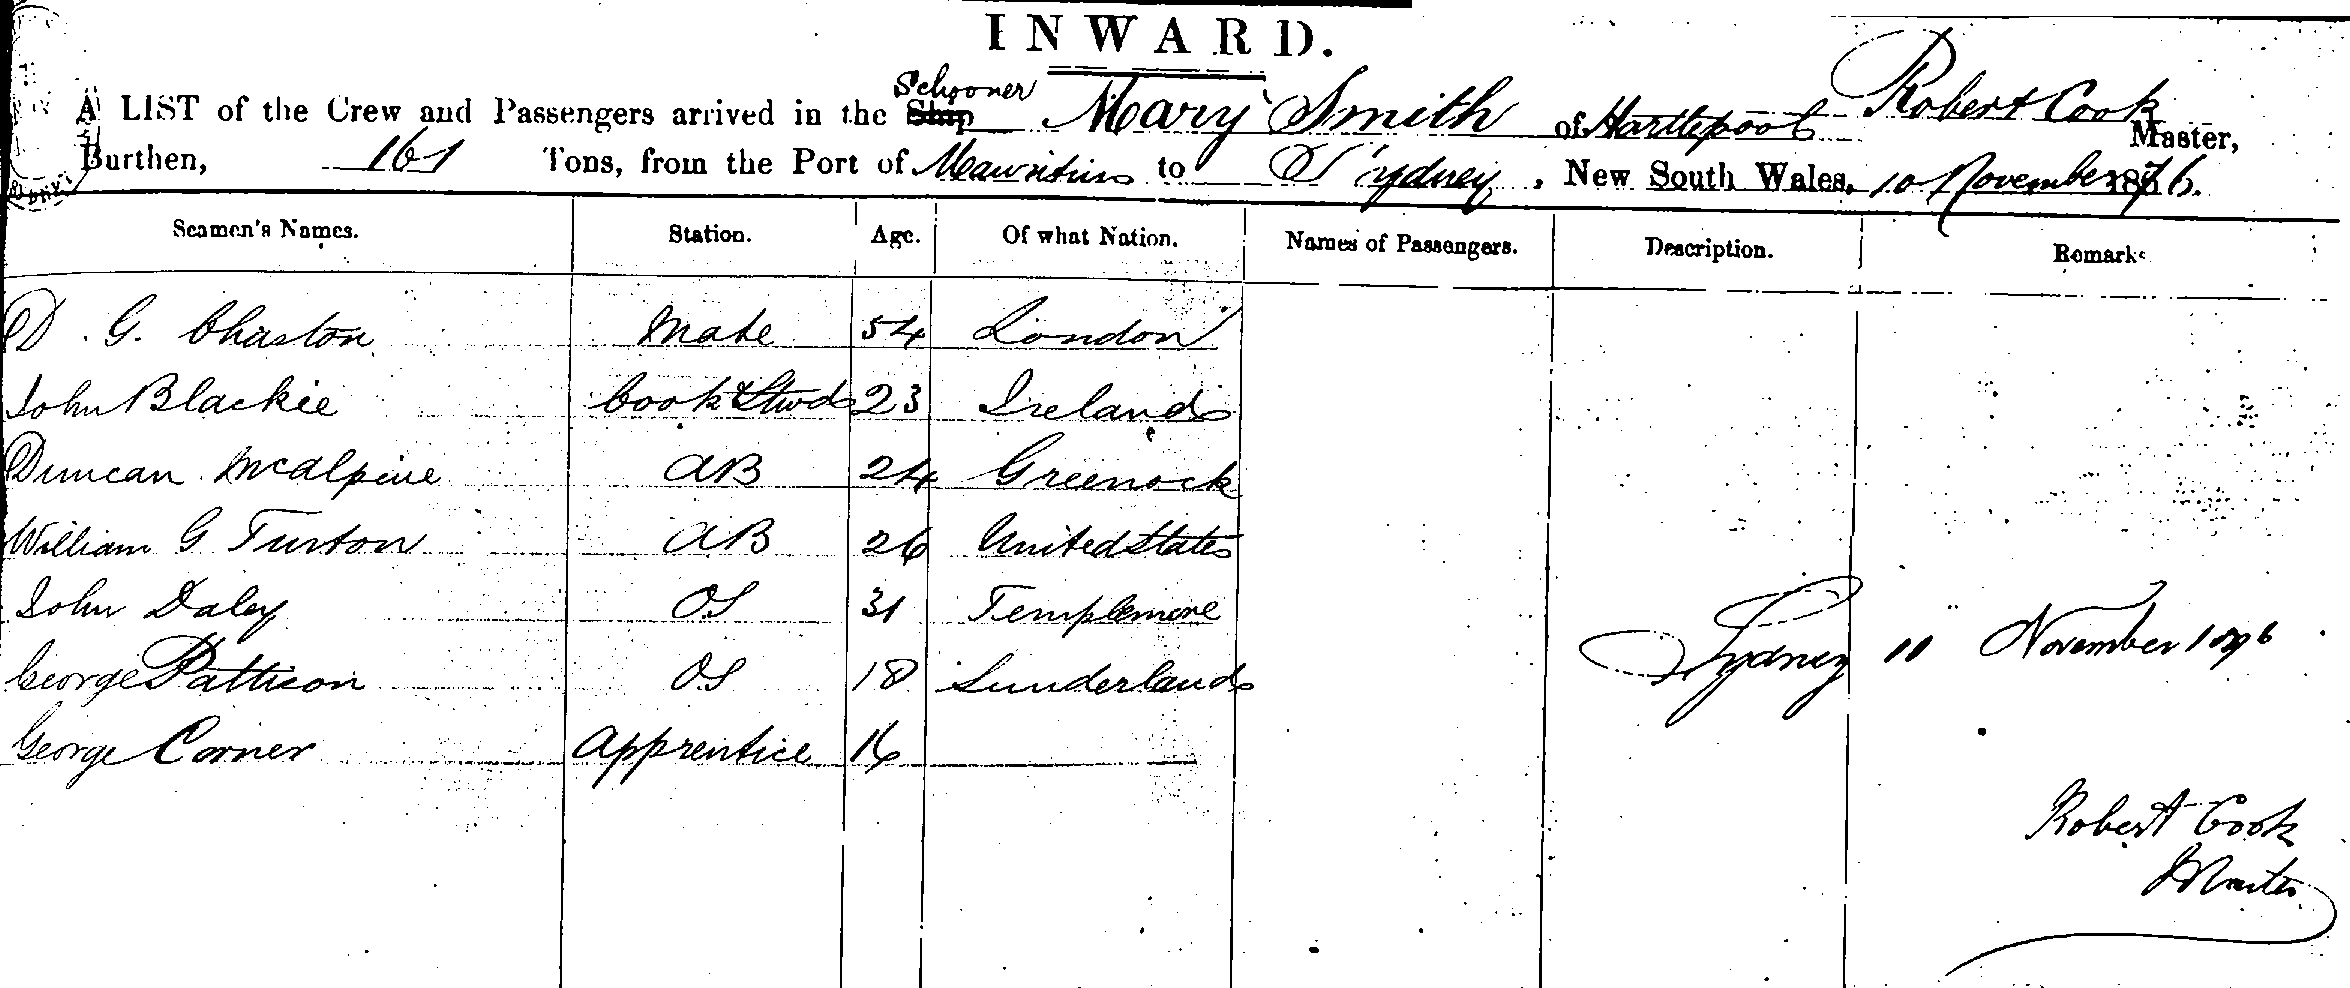 INWARD.
Schooner
A LIST of the Crew and Passengers arrived in the Ship Mary Smith of Hartlepool Robert Cook Master,
Burthen, 161 Tons, from the Port of Mauritius to Sydney, New South Wales, 10 November 1876.
Seamen's Names. Station. Age. Of what Nation. Names of Passengers. Description. Remarks
D. G. Chaston Mate 54 London
John Blackie Cook & Stwd 23 Ireland
Duncan McAlpine AB 24 Greenock
William G Turton AB 26 United States
John Daley OS 31 Templemore
George Pattison OS 18 Sunderland
Sydney 11 November 1876
George Corner Apprentice 16
Robert Cook
Master